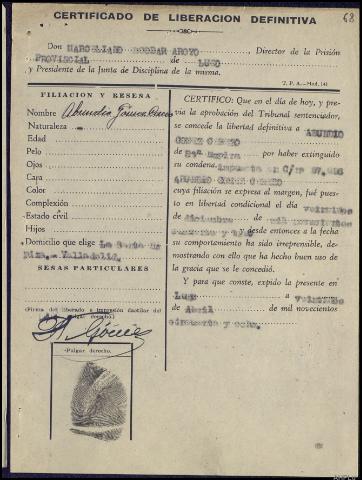 68
CERTIFICADO DE LIBERACION DEFINITIVA
Don MARCELIANO ESCOBAR ARROYO, Director de la Prisión
PROVINCIAL de LUGO
y Presidente de la Junta de Disciplina de la misma.
T. P. A.—Mod. 141
FILIACION Y RESEÑA
Nombre Abundio Gómez
Naturaleza
Edad
Pelo
Ojos
Cara
Color
Complexión
Estado civil
Hijos
Domicilio que elige La
Valladolid.
SEÑAS PARTICULARES
(Firma del liberado e impresión dactilar del
pulgar derecho.)
A. Gómez
(Pulgar derecho.
CERTIFICO: Que en el día de hoy, y pre-
via la aprobación del Tribunal sentenciador,
se concede la libertad definitiva a ABUNDIO
GOMEZ
de por haber extinguido
su condena impuesta en
ABUNDIO GOMEZ
cuya filiación se expresa al margen, fué pues-
to en libertad condicional el día veintidos
de diciembre de mil novecientos
cuarenta y desde entonces a la fecha
su comportamiento ha sido irreprensible, de-
mostrando con ello que ha hecho buen uso de
la gracia que se le concedió.
Y para que conste, expido la presente en
Lugo a
de Abril de mil novecientos
cuarenta y ocho.